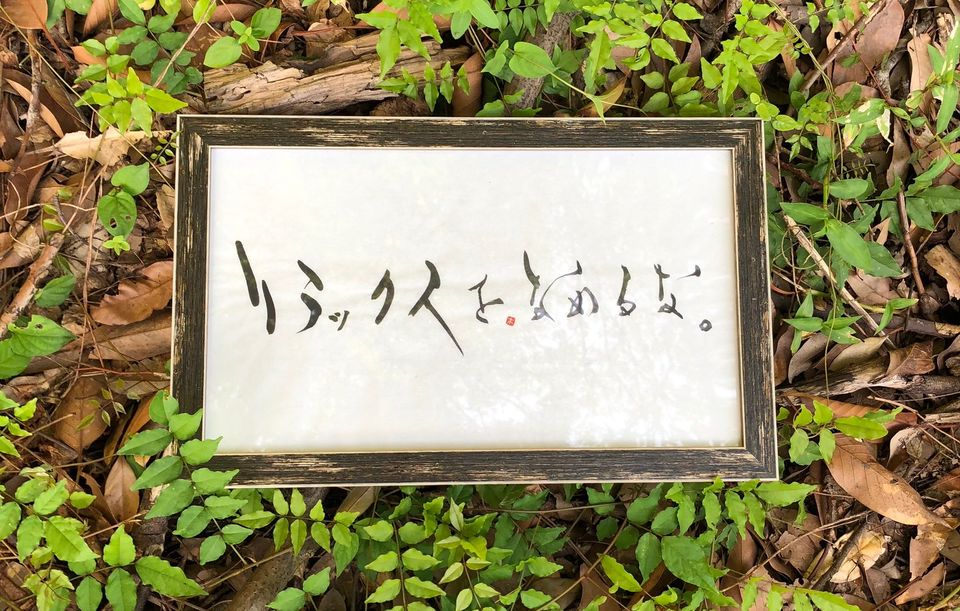 リラックスをなめるな。